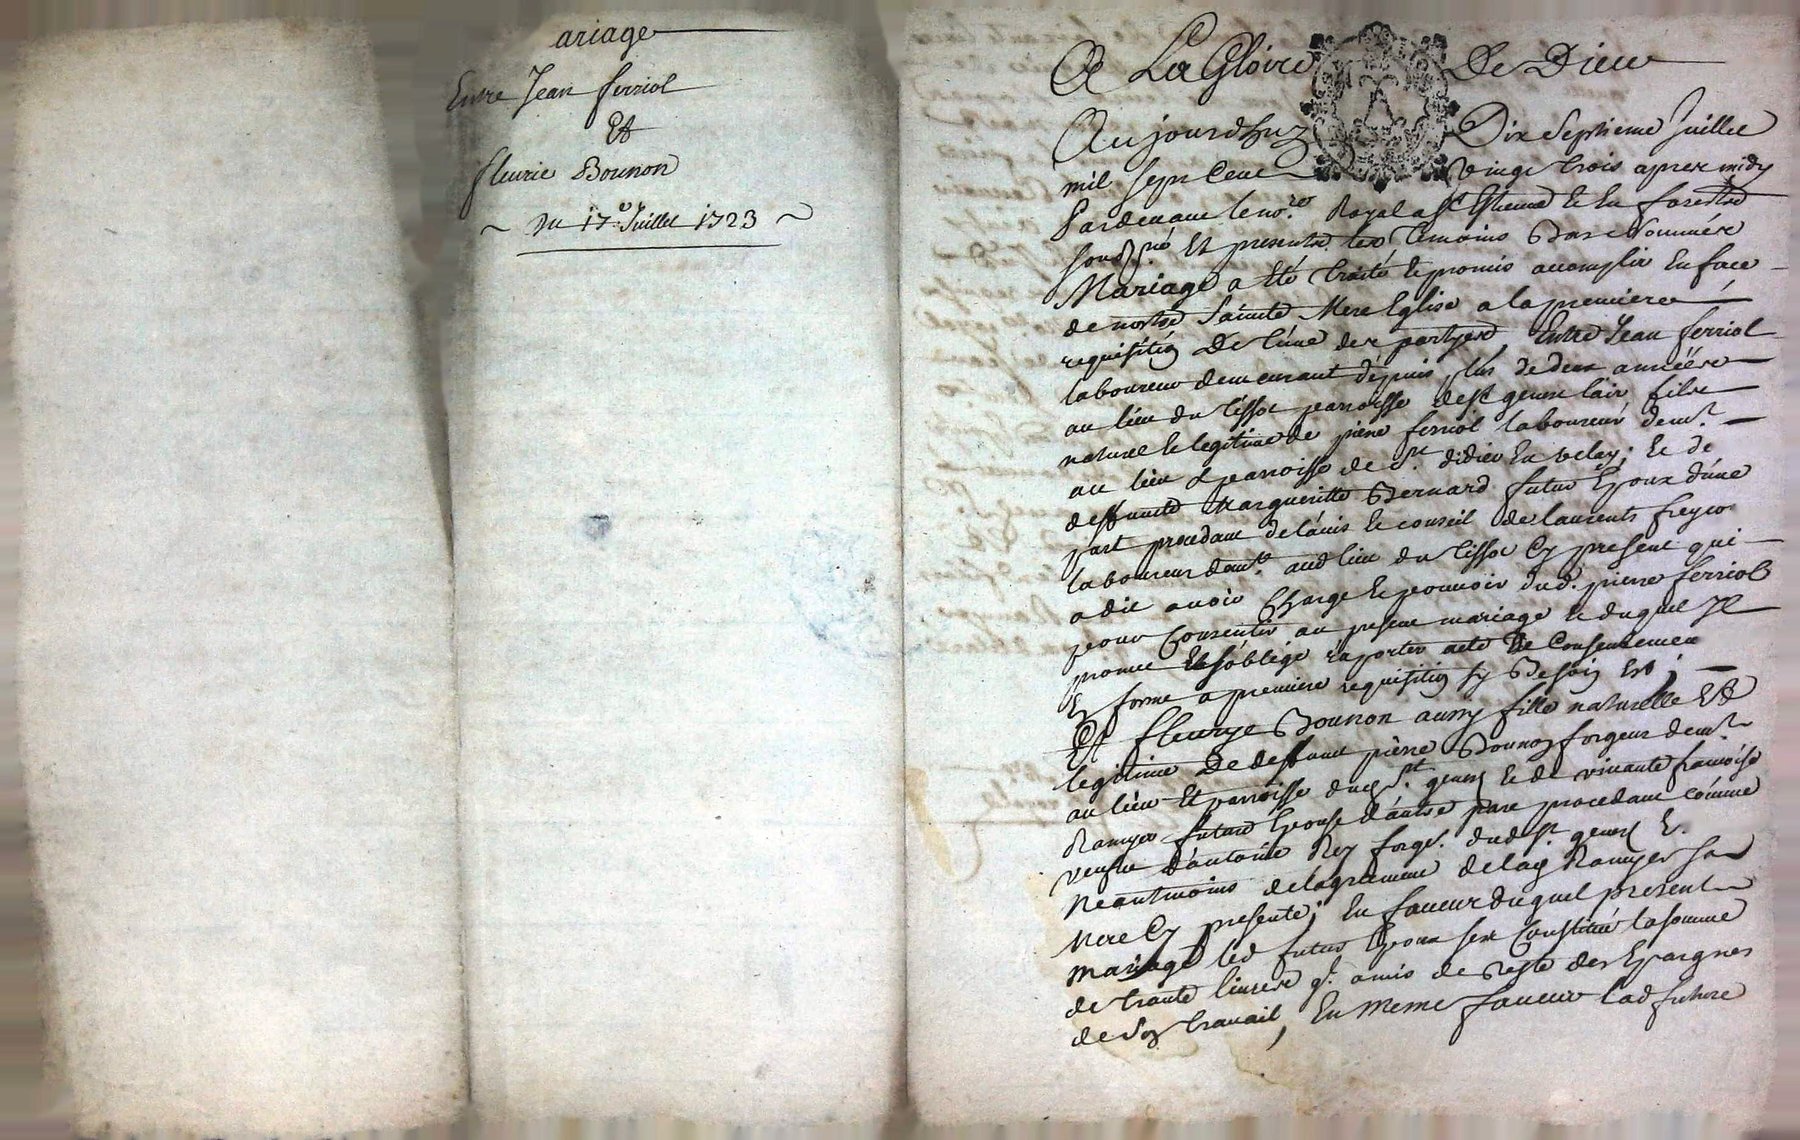 ariage
Entre Jean ferriol
Et
fleurie Bounon
~ Du 17e Juillet 1723 ~
A La Gloire De Dieu
Aujourdhuy Dix Septieme Juillet
mil sept Cent vingt trois apres midy
Pardevant le nore Royal a St Estienne
soubz.né Et presents les temoins Bas nommés
Mariage a été traité et promis accomplir En face
de nostre Sainte Mere Eglise a la premiere
requisition De l'une des partyes, Entre Jean ferriol
laboureur demeurant depuis plus de deux années
au lieu du tissot parroisse de St genest lair fils
naturel et legitime de pierre ferriol laboureur demt
au lieu & parroisse de St didier En velay; Et de
deffunte Margueritte Bernard futur Epoux d'une
part procedant de l'avis et conseil de laurent
laboureur demt aud lieu du tissot Cy present qui
a dit avoir Charge et pouvoir dud. pierre ferriol
pour Consentir au present mariage et duquel Jl
promet Et s'oblige raporter acte De Consentement
En forme a premiere requisition sy Besoin Est,
Et fleurye Bounon aussy fille naturelle Et
legitime De deffunt pierre Bounon forgeur demt
au lieu Et parroisse dud St genest et de vivante francoise
Ramyer future Epouse d'autre part procedant comme
veufve d'antoine Rey forgr. dud St genest Et
Neantmoins de lagrement de lad Ramyer sa
Mere Cy presente; En faveur duquel present
mariage led futur Epoux s'est Constitué la somme
de trante livres ql. a mis de reste des Epargnes
de Son travail, En meme faveur lad future